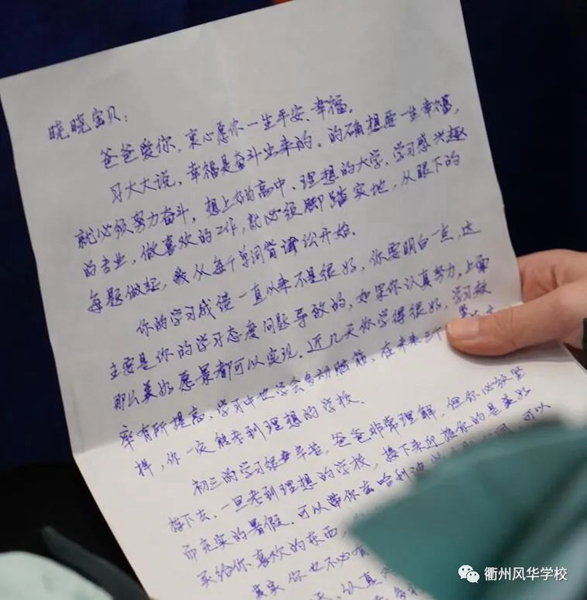 晓晓宝贝：
爸爸爱你，衷心愿你一生平安、幸福。
习大大说，幸福是奋斗出来的。的确想要一生幸福，
就必须努力奋斗，想上好的高中、理想的大学，学习感兴趣
的专业，做喜欢的工作，就必须脚踏实地，从眼下的
每题做起，我从每个单词背诵公开始。
你的学习成绩一直以来不是很好，你要明白一点，这
主要是你的学习态度问题导致的，如果你认真努力，上面
那么美好愿景都可以实现。近几天你学得很好，学习效
率有所提高，学习中也学会
样，你一定能考到理想的学校。
初三的学习很辛苦，爸爸非常理解，但你必须坚
持下去，一旦考到理想的学校，接下来迎接你的是美好
而充实的暑假，可以带你去哈利 可以
买给你喜欢的东西
其实你也不必
认真
衢州风华学校